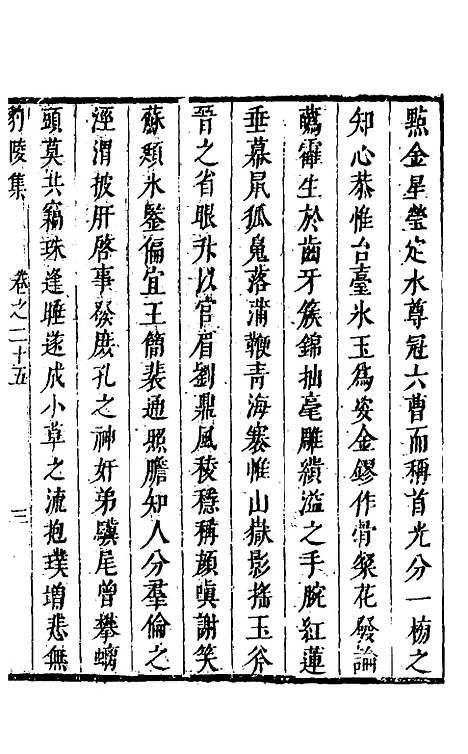 點金星瑩定水尊冠六曹而稱首光分一栘之
知心恭惟台臺氷玉爲姿金鏐作骨粲花發論
薦霏生於齒牙簇錦抽毫雕繢溢之手腕紅蓮
垂幕鼠狐鬼落蒲鞭青海褰惟山嶽影搖玉斧
晉之省眼升以官眉劉鼎風稜穩稱顔嗔謝笑
蘇類氷鑒偏宜王簡裴通照膽知人分羣倫之
涇渭披肝啓事發度孔之神奸弟驥尾曾攀蜵
頭莫共竊珠逢睡遂成小草之流抱璞增悲無
豹陵集 卷之二十五 三